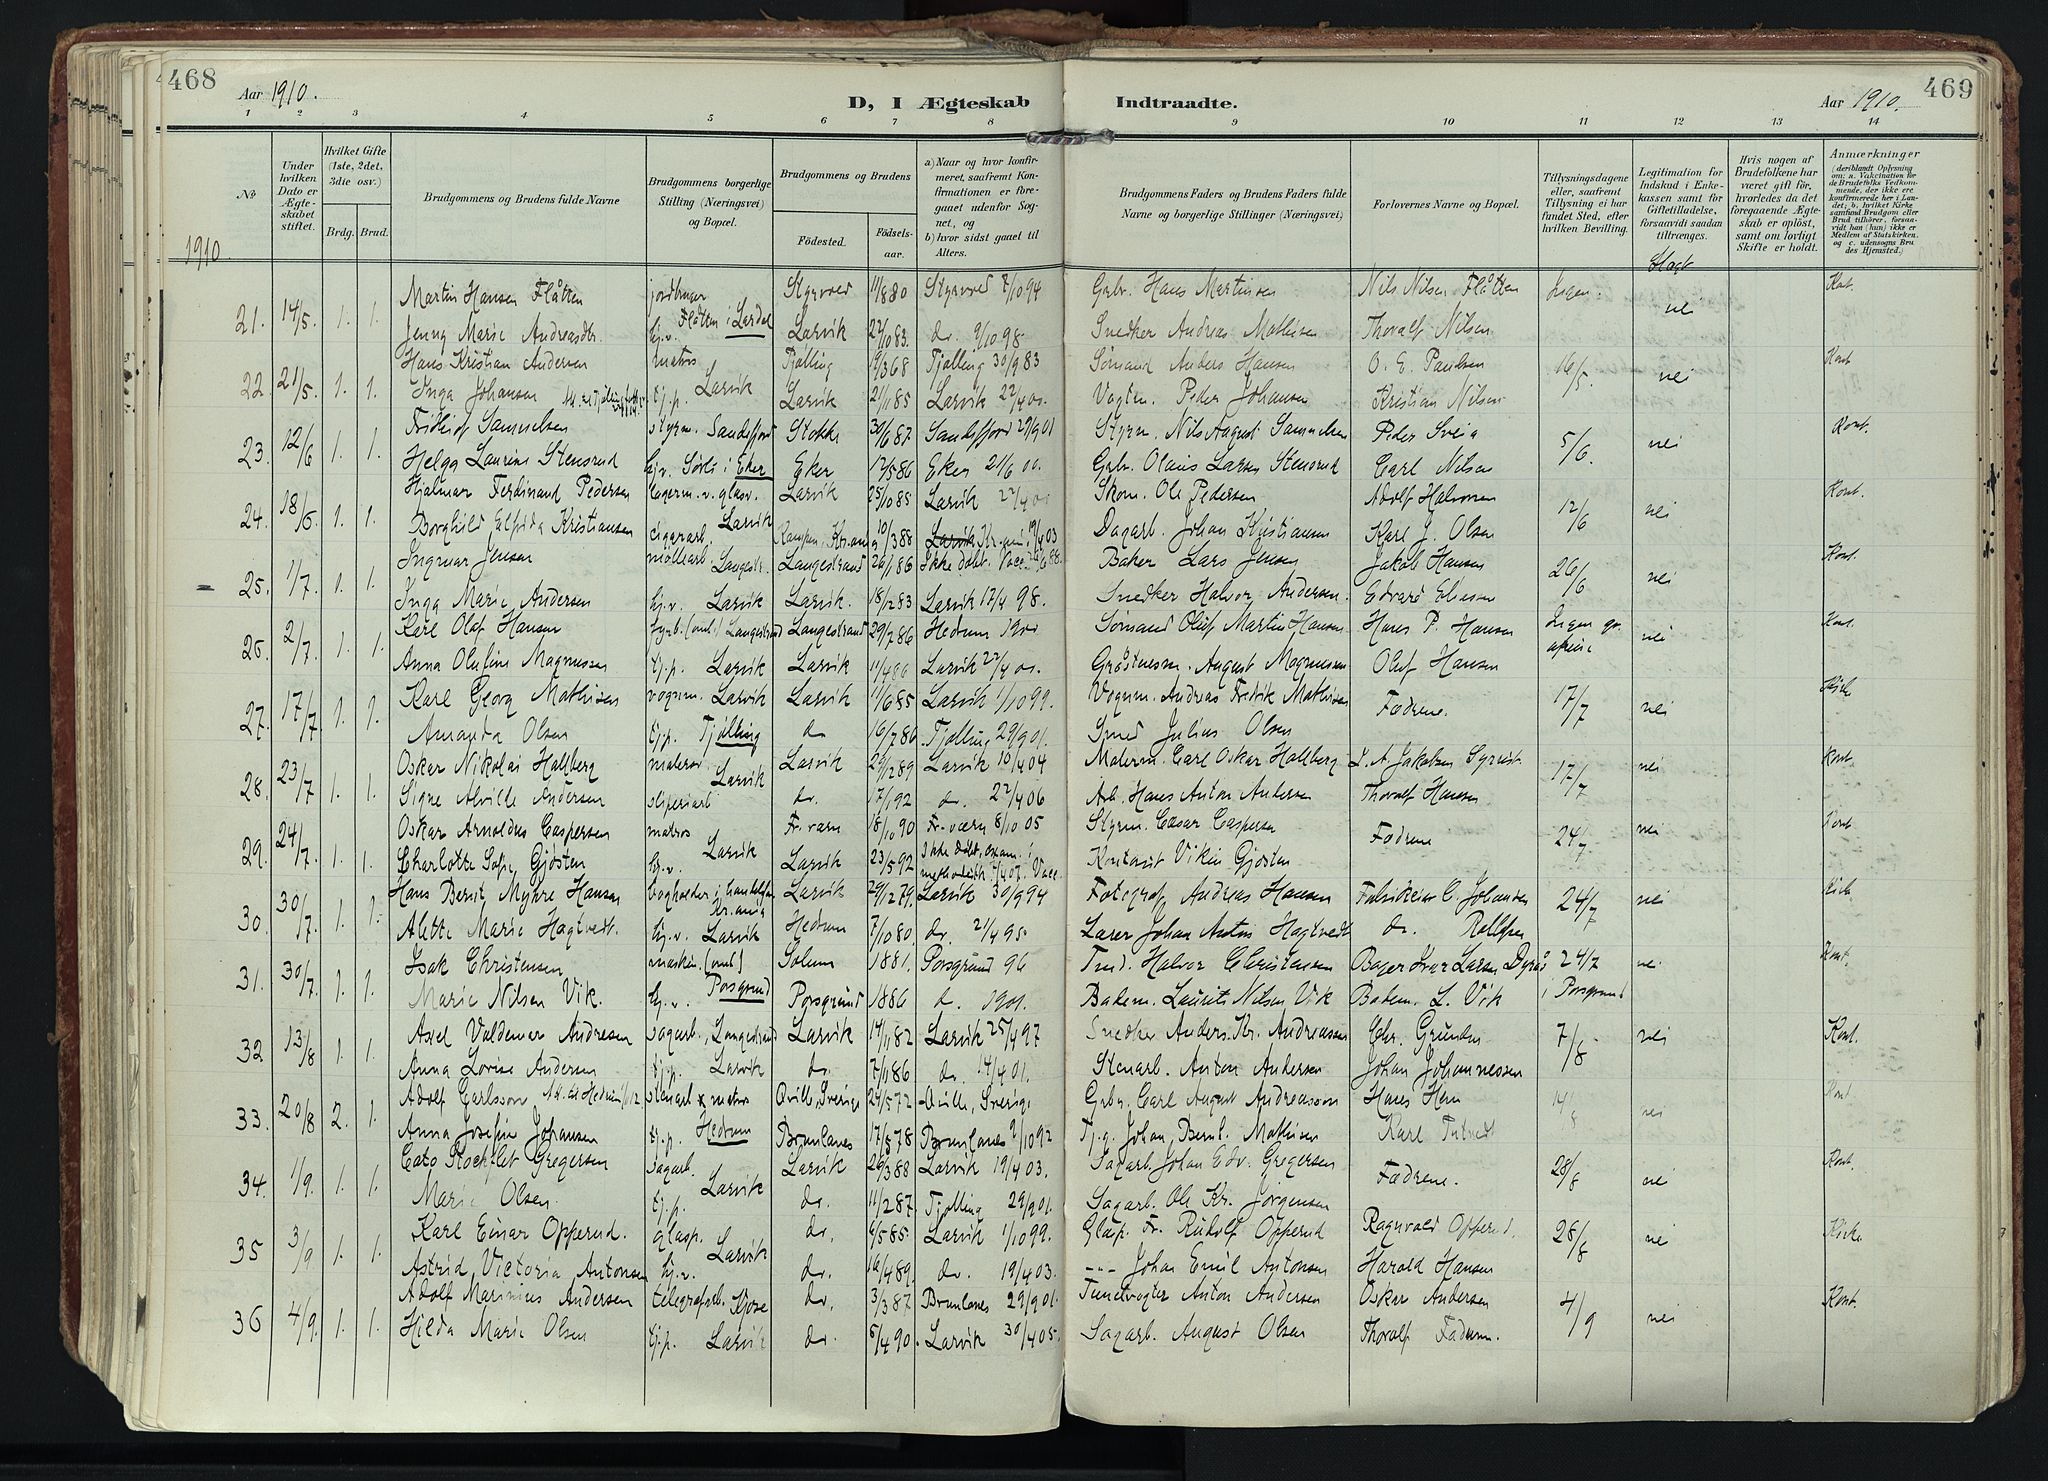 468
Aar 1910.
D, I Ægteskab
Indtraadte.
Aar 1910.
469
1 2 3 4 5 6 7 8 9 10 11 12 13 14
No
Under hvilken Dato er Ægteskabet stiftet.
Hvilket Gifte (1ste, 2det, 3die osv.)
Brdg. Brud.
Brudgommens og Brudens fulde Navne
Brudgommens borgerlige Stilling (Næringsvei) og Bopæl.
Brudgommens og Brudens
Fødested. Fødselsaar.
a) Naar og hvor konfirmeret, saafremt Konfirmationen er foregaaet udenfor Sognet, og
b) hvor sidst gaaet til Alters.
Brudgommens Faders og Brudens Faders fulde Navne og borgerlige Stillinger (Næringsvei)
Forlovernes Navne og Bopæl.
Tillysningsdagene eller, saafremt Tillysning ei har fundet Sted, efter hvilken Bevilling.
Legitimation for Indskud i Enkekassen samt for Giftetilladelse, forsaavidt saadan tiltrænges.
Hvis nogen af Brudefolkene har været gift før, hvorledes da det foregaaende Ægteskab er opløst, samt om lovligt Skifte er holdt.
Anmærkninger (deriblandt Oplysning om: a. Vakcination for de Brudefolks Vedkommende, der ikke ere konfirmerede her i Landet; b. hvilket Kirkesamfund Brudgom eller Brud tilhører, forsaavidt han (hun) ikke er Medlem af Statskirken, og c. udensogns Brudes Hjemsted.)
1910
21. 14/5. 1. 1. Martin Hansen Flåtten jordbruger Styrvold 11/8 80 Styrvold 7/10 94 Gbr. Hans Martinsen Nils Nilsen Flåtten Ingen. nei Kont.
Jenny Marie Andreasdtr. hj.v. Flåtten i Lardal Larvik 22/10 83. do. 9/10 98 Snedker Andreas Mathisen Thoralf Nilsen
22. 21/5. 1. 1. Hans Kristian Andersen matros Tjølling 19/3 68 Tjølling 30/9 83 Sømand Anders Hansen O. E. Paulsen 16/5. nei Kont
Inga Johansen tj.p. Larvik Larvik 21/11 85 Larvik 22/4 00. Vagtm. Peder Johansen Kristian Nilsen
23. 12/6 1. 1. Fridleif Samuelsen styrm. Sandefjord Stokke 30/6 87. Sandefjord 29/9 01 Styrm. Nils August Samuelsen Peder Sveia 5/6. nei Kont.
Helga Laurine Stensrud hj.v. i Eker Eker 12/5 86 Eker 21/6 00. Gbr. Olaus Larsen Stensrud Carl Nilsen
24. 18/6. 1. 1. Hjalmar Ferdinand Pedersen lagerm. v. glasv. Larvik 25/10 85 Larvik 22/4 00 Skom. Ole Pedersen Adolf Halvorsen 12/6 nei Kont.
Borghild Elfrida Kristiansen cigararb. Larvik Kampen, Kr.ania 10/3 88 Larvik Kr.ania 19/4 03 Dagarb. Johan Kristiansen Karl J. Olsen
25. 1/7. 1. 1. Ingmar Jensen møllearb. Langestr. Langestrand 26/1 86 Ikke døbt. Vacc. Baker Lars Jensen Jakob Hansen 26/6 nei Kont.
Inga Marie Andersen hj.v. Larvik Larvik. 18/12 83 Larvik 17/4 98. Snedker Halvor Andersen. Edvard Eliasen
26. 2/7. 1. 1. Karl Olaf Hansen fyrb. (oml.) Langestrand Langestrand 29/7 86 Hedrum 1900 Sømand Oluf Martin Hansen Hans P. Hansen Ingen nei Kont.
Anna Oluline Magnussen tj.p. Larvik Larvik 11/4 86 Larvik 22/4 00. August Magnussen Oluf Hansen
27. 17/7 1. 1. Karl Georg Mathisen vognm. Larvik Larvik 11/6 85 Larvik 1/10 99. Vognm. Andreas Fredrik Mathisen Fædrene. 17/7 nei Kirke
Amanda Olsen tj.p. Tjølling do 16/7 86 Tjølling 29/9 01. Smed Julius Olsen
28. 23/7 1. 1. Oskar Nikolai Hallberg matros Larvik Larvik 29/12 89 Larvik 10/4 04 Malerm. Carl Oskar Hallberg L. A. Jakobsen 17/7 nei Kont.
Signe Alvilde Andersen sliperiarb do. 17/1 92 do. 22/4 06 Arb. Hans Anton Andersen Thoralf Hansen
29. 24/7. 1. 1. Oskar Arnoldus Caspersen matros Fr.værn 18/10 90 Fr.værn 8/10 05 Styrm. Cæsar Caspersen Fædrene 24/7 nei Kont
Charlotte Sofie Gjøsten hj.v. Larvik Larvik 23/5 92 Ikke døbt, i methodistk. Vacc. Kontorist Gjøsten
30. 30/7. 1. 1. Hans Bernt Myhre Hansen bogholder i Kr.ania Larvik 29/12 79. Larvik 30/9 94 Fotograf Andreas Hansen Fabrikeier C. Johansen 24/7 nei Kirk
Alette Marie Hagtvedt. hj.v. Larvik Hedrum 7/10 80. do. 21/4 95. Lærer Johan Anton Hagtvedt do.
31. 30/7. 1. 1. Isak Christensen maskin. (oml) Solum 1881. Porsgrund 96 Halvor Christensen Ivar Larsen 24/7 nei Kont.
Marie Nilsen Vik. hj.v. Porsgrund Porsgrund 1886 do. 1901. Badem. Laurits Nilsen Vik Badem. L. Vik i Porsgrund
32 13/8 1. 1. Axel Valdemar Andresen sagarb., Langestrand Larvik 14/11 82 Larvik 25/4 97 Snedker Anders Kr. Andreassen Chr. Grunden 7/8 nei Kont.
Anna Lovise Andersen tj.p. Larvik do. 7/11 86 do. 14/4 01. Stenarb. Anton Andersen Johan Johannessen
33. 20/8 2. 1. Adolf Carlsson stenarb matros Qville, Sverige 24/5 72 Qville, Sverige Gbr. Carl August Andreasson Hans Hem 14/8 nei Kont
Anna Josefine Johansen tj.p. Hedrum Brunlanes 17/5 78 Brunlanes 2/10 92 Johan Bernt. Mathisen Karl
34. 1/9. 1. 1. Cato Rochflet Gregersen sagarb. Larvik 26/3 88 Larvik 19/4 03. Sagarb. Johan Edv. Gregersen Fædrene. 28/8 nei Kont.
Marie Olsen tj.p. Larvik do. 11/2 87. Tjølling 29/9 01. Sagarb. Ole Kr. Jørgensen
35 3/9 1. 1. Karl Einar Opperud. glasp. do. 6/5 85. Larvik 1/10 99. Glasp. Fr. Rudolf Opperud Ragnvald Opperud. 28/8 nei Kirke
Astrid Victoria Antonsen hj.v. Larvik do. 16/4 89. do. 19/4 03. --- Johan Emil Antonsen Harald Hansen
36 4/9. 1. 1. Adolf Marinius Andersen telegrafarb. Kjose do. 3/3 87 Brunlanes 29/9 01. Tunelvogter Anton Andersen Oskar Andersen 4/9 nei Kont.
Hilda Marie Olsen tj.p. Larvik do. 5/4 90. Larvik 30/4 05. Sagarb. August Olsen Thoralf Fadum.